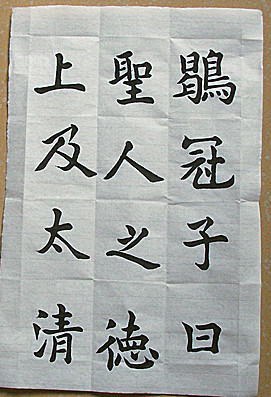 鶡冠子曰
聖人之德
上及太清